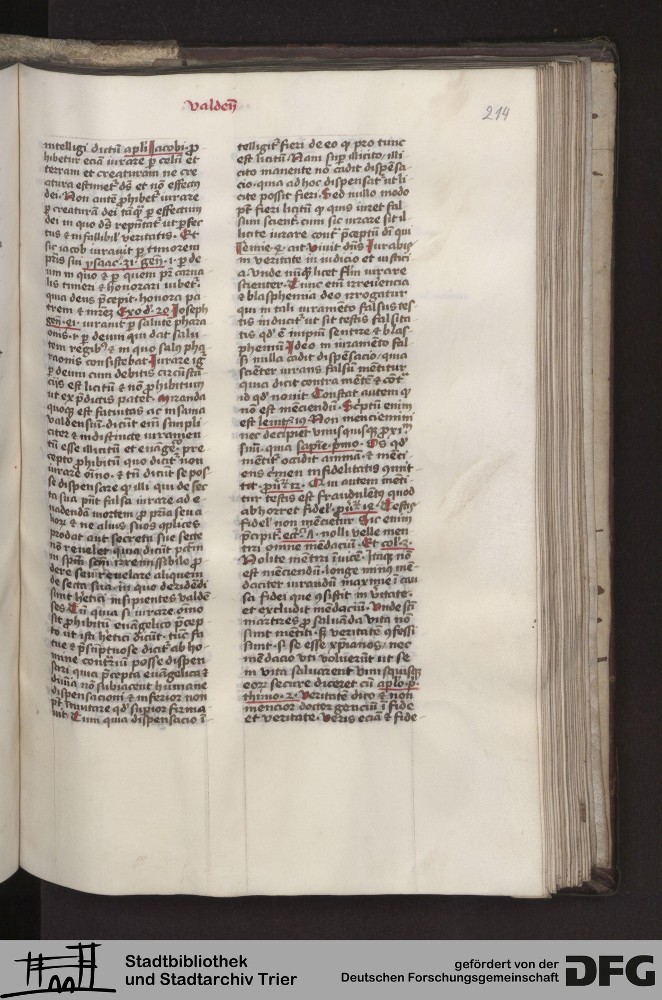 valden̄
214
intelligi dictū apl̄i Iacobi. p̄
hibetur eciā iurare p̄ celū et
terram et creaturam ne cre
atura estimet᷑ dś et nō effectꝰ
dei. Non autē ꝓhibet᷑ iurare
ꝑ creaturā dei tāqȝ ꝑ effectum
dei in quo dś
tus & infallibil᷑ veritatis. Et
sic iacob iurauit ꝑ timorem
pr̄is sui ysaac. 31. gen̄. ꝑ de
um in quo & ꝑ quem pr̄ carna
lis timeri & honorari iubet᷑
quia deus p̄cepit. honora pa
trem & mr̄eȝ Exod. 20. Ioseph
gen̄. iurauit ꝑ salutē phara
onis. ꝑ deum qui dat salu
tem regibꝰ & in quo salꝰ pha
raonis consistebat. Iurare igr̄
ꝑ deum cum debitis circūstā
cijs est licitū & nō ꝓhibitum
ut ex p̄dictis patet. Miranda
quoqȝ est fatuitas ac insania
valdensiū. dicūt eīm simpli
citer & indistincte iuramen
tū esse illicitū et euāg̅e. pre
cepto ꝓhibitū quo dicit᷑ non
iurare oīno. & tn̄ dicūt se pos
se dispensare qȝ illi qui de sec
ta sua pn̄t falsa iurare ad e
uadendā mortem ꝓpriā seu a
lior̄ & ne alios suos ꝯplices
prodat aut secreta sue secte
nō reuelet quia dicūt pctm̄
in sp̄m scm̄ irremissibile ꝓ
dere seu reuelare aliquem
de secta sua. in quo deridēdi
sunt hetici insipientes valdē
ses. Cū quia si iurare oīno
sit ꝓhibitū euāgelico p̄cep
to ut isti hetici dicūt. tūc fa
tue & p̄sūptuose dicūt ab ho
mine contr̄iū posse dispen
sari. quia p̄cepta euāgelica &
diuīa nō subiacent humane
dispensacioni & inferior non
pt̄ mutare qd̕ suꝑior firma
uit. Tum quia dispensacio ī
telligit᷑ fieri de eo qȝ pro tunc
est licitū. Nam suꝑ illicito, illi
cito manente nō cadit dispēsa
cio. quia ad hoc dispensat᷑ ut li
cite possit fieri. Sed nullo modo
pt̄ fieri licitū qȝ quis iuret fal
sum scient᷑ cum sic iurare sit il
licite iurare cont᷑ p̄ceptū dei qui
Iemie. 4. ait viuit dn̄s Iurabis
in veritate in iudicio et iustici
a. vnde nūqȝ licet flm̄ iurare
scienter. Tunc eīm irreuencia
& blasphemia deo irrogatur
qui in tali iuramēto falsus tes
tis inducit᷑ ut sit testis falsita
tis qd̕ ē impiū sentire & blas
phemiū. Ideo in iuramēto fal
si nulla cadit dispēsacio. quia
sciēter iurans falsū mētitur
quia dicit contra mētē & cōt᷑
id qd̕ nouit. Constat autem qȝ
nō est menciendū. Scptū enim
est leuit̕ 19. Non menciemini
nec decipiet vnusquisqȝ ꝓxi
suū. quia sapīe. pmo. Os qd̕
mētit᷑ occidit animā. & mēci
ens crimen infidelitatis
tit. Qui autem mēti
tur testis est fraudulent᷑ quod
abhorret fidel᷑ Testis
fidel᷑ non mēcietur. Sic enim
p̄cipit. ecc. 7. nolli velle men
tiri omne mēdaciū. Et col. 3.
Nolite mētiri īuicē. Itaqȝ nō
est mēciendū. longe minꝰ mē
daciter iurandū maxime ī cau
sa fidei que ꝯsistit in vitate.
et excludit mēdaciū. Vnde sc̄i
martires ꝓ saluāda vita nō
sunt mētiti. sȝ veritatē ꝯfessi
sunt. si se esse xp̄ianos, nec
mēdacio vti voluerūt ut se
in vita saluarent vnusquisqȝ
eorȝ secure diceret cū apl̄o p.
thimo. 2. veritatē dico & non
mencior doctor genciū ī fide
et veritate. veris eciā & fide
Stadtbibliothek
und Stadtarchiv Trier
gefördert von der
Deutschen Forschungsgemeinschaft
DFG